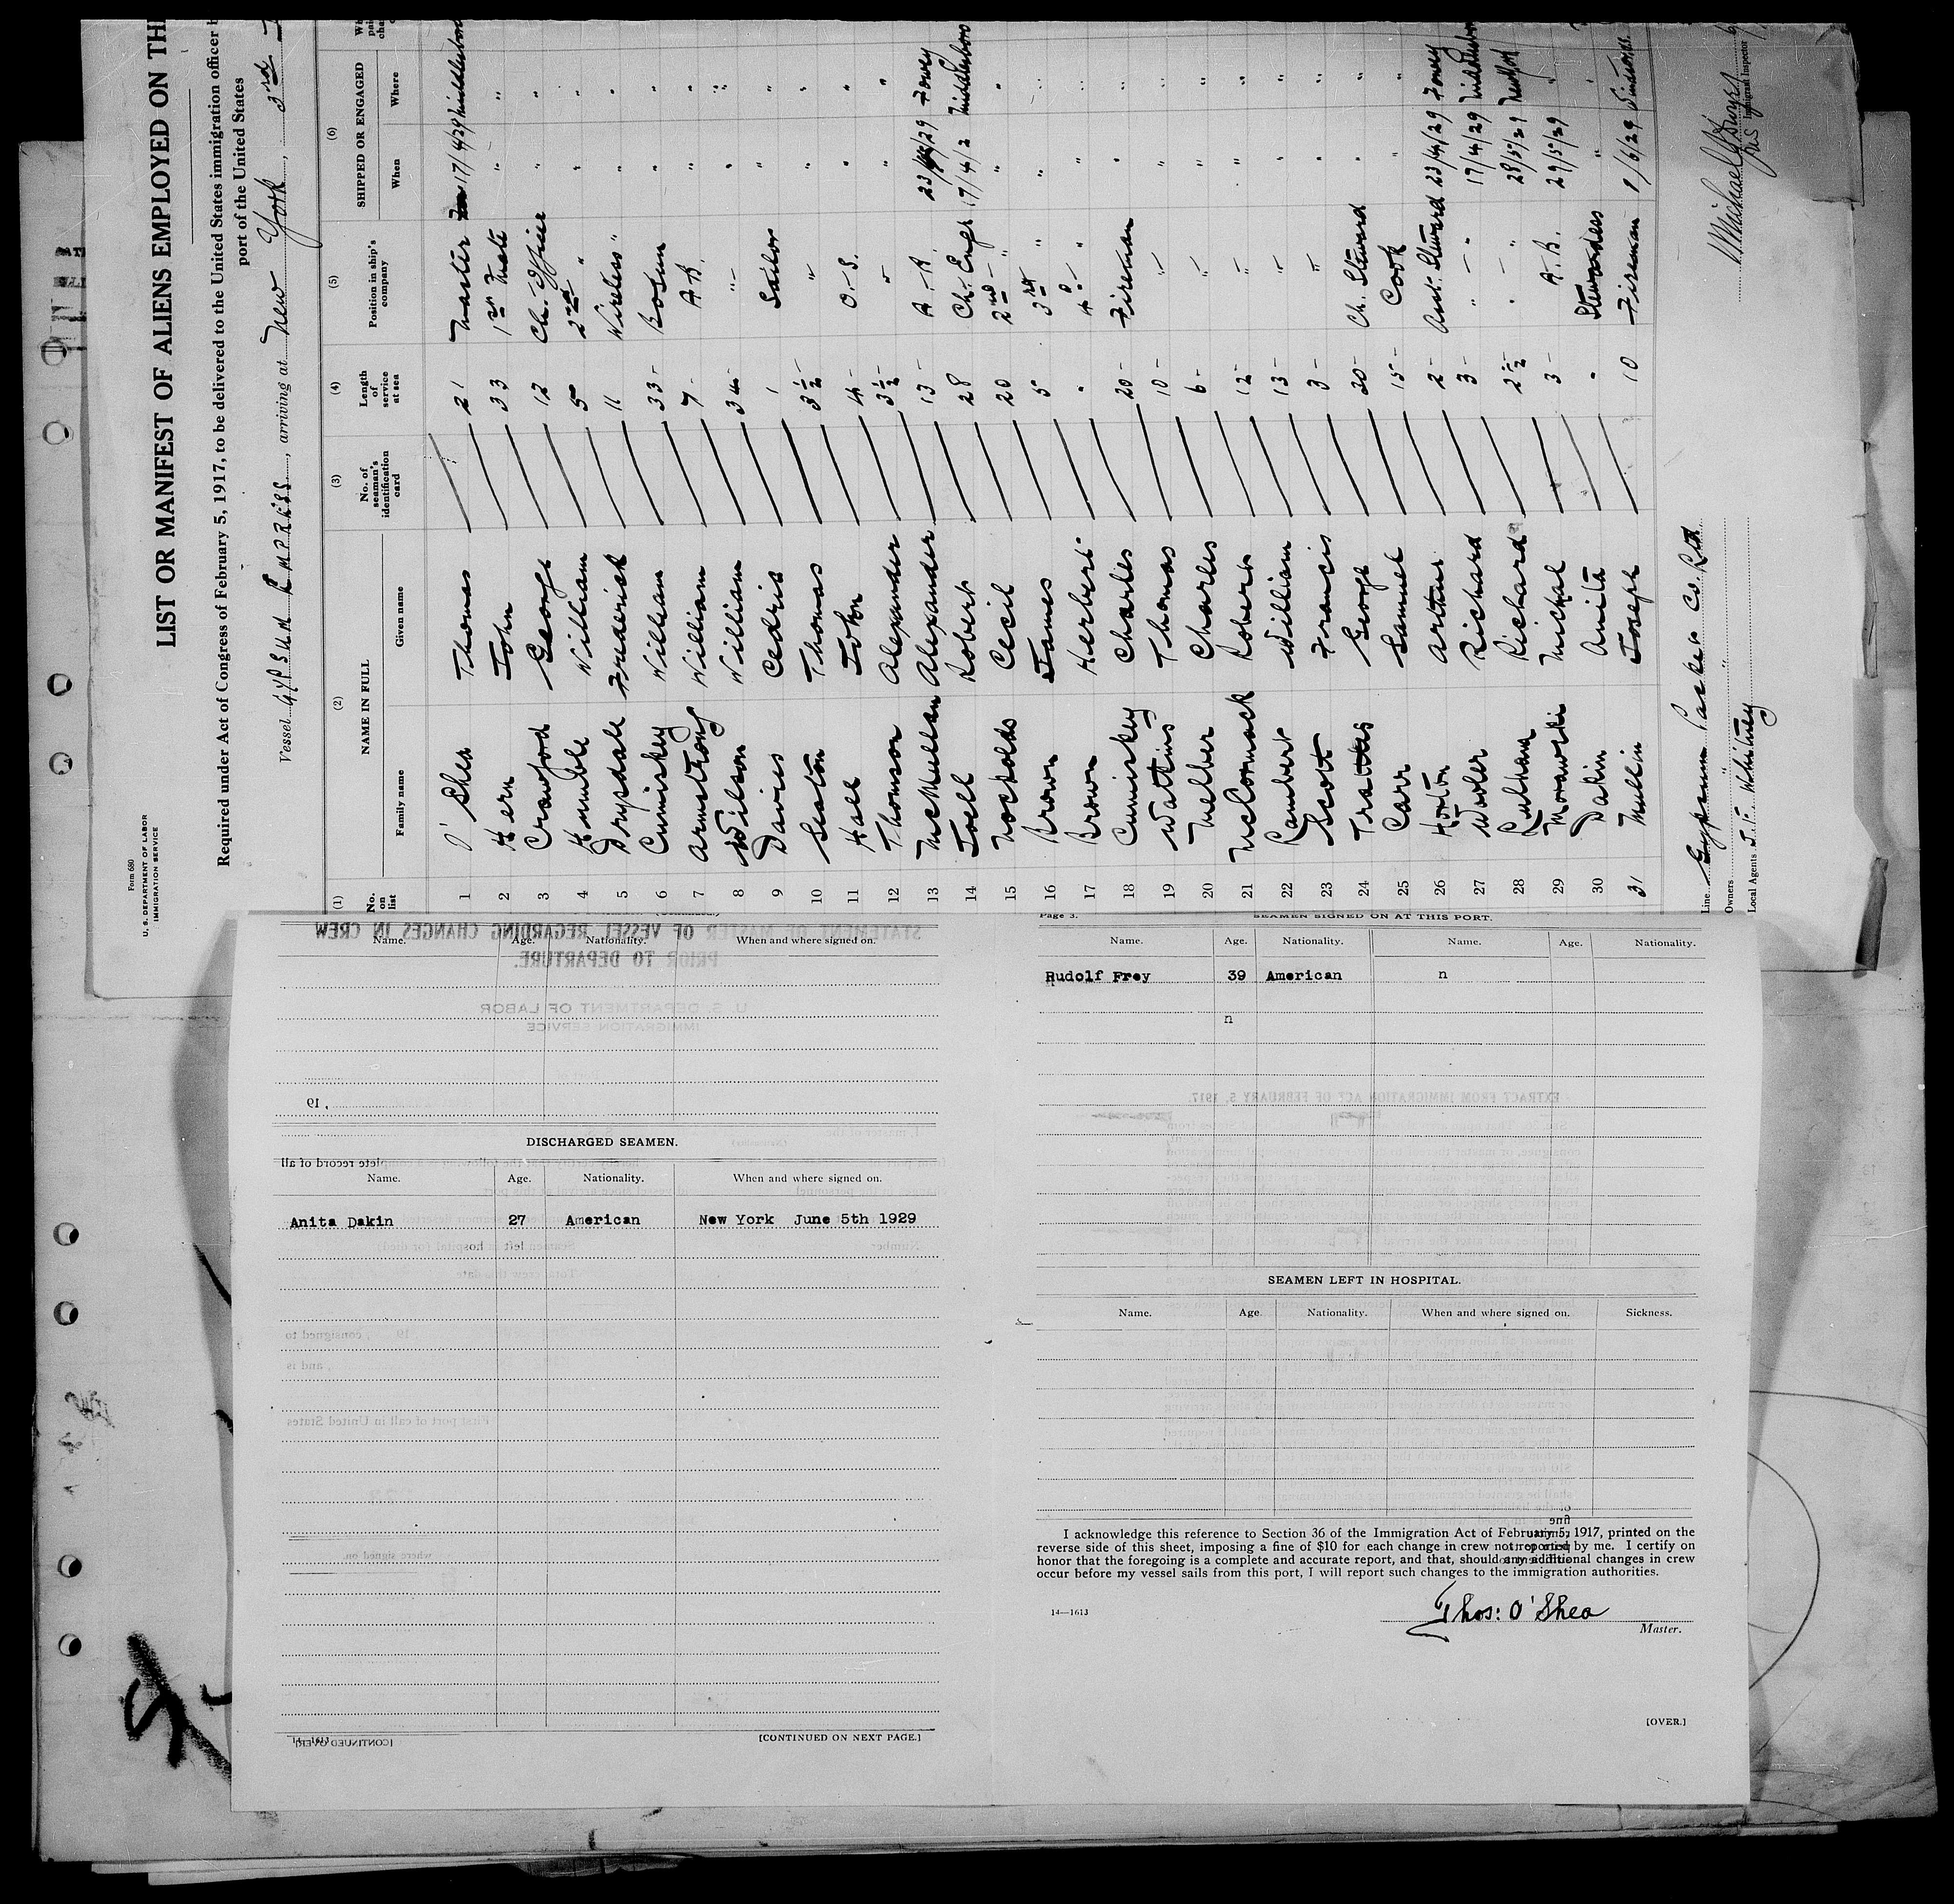 Form 680
U. S. DEPARTMENT OF LABOR
IMMIGRATION SERVICE
LIST OR MANIFEST OF ALIENS EMPLOYED ON TH
Required under Act of Congress of February 5, 1917, to be delivered to the United States immigration officer
port of the United States
Vessel GYPSUM EMPRESS, arriving at New York, 3rd
(1) (2) (3) (4) (5) (6)
No. on list NAME IN FULL No. of seaman's identification card Length of service at sea Position in ship's company SHIPPED OR ENGAGED
Family name Given name When Where
1 O'Shea Thomas 21 Master 17/4/29
2 Hern John 33 1st Mate " "
3 Crawford George 12 Ch. Officer " "
4 Humble William 5 2nd " " "
5 Drysdale Frederick 11 Wireless " " "
6 Cumiskey William 33 Bosun " "
7 Armstrong William 7 A.B. " "
8 Wilson William 34 " " "
9 Davies Cedric 1 Sailor " "
10 Seaton Thomas 3½ " " "
11 Hall John 4 O.S. " "
12 Thomson Alexander 3½ " " "
13 McMullan Alexander 13 A.B. 23/4/29 Fowey
14 Joell Robert 28 Ch. Engr 17/4/2
15 Nockolds Cecil 20 2nd " " "
16 Brown James 5 3rd " " "
17 Brown Herbert " 4th " " "
18 Cumiskey Charles 20 Fireman " "
19 Watkins Thomas 10 " " "
20 Melber Charles 6 " " "
21 McCormack Robert 12 " " "
22 Lambert William 13 " " "
23 Scott Francis 3 " " "
24 George 30 Ch. Steward " "
25 Carr Samuel 15 Cook " "
26 Horton Arthur 2 Asst. Steward 23/4/29 Fowey
27 Richard 3 " " 17/4/29
28 Richard 2½ " " 28/5/29
29 Michal 3 A.B. 29/5/29 "
30 Dakin Anita " Stewardess " "
31 Mullin Joseph 10 Fireman 1/6/29
Line Gypsum Packet Co. Ltd
Owners " "
Local Agents J.F. Whitney
Immigrant Inspector
Name. Age. Nationality. When and where signed on.
DISCHARGED SEAMEN.
Name. Age. Nationality. When and where signed on.
Anita Dakin 27 American New York June 5th 1929
14—1613
[CONTINUED ON NEXT PAGE.]
Page 3. SEAMEN SIGNED ON AT THIS PORT.
Name. Age. Nationality. Name. Age. Nationality.
Rudolf Frey 39 American n
n
SEAMEN LEFT IN HOSPITAL.
Name. Age. Nationality. When and where signed on. Sickness.
I acknowledge this reference to Section 36 of the Immigration Act of February 5, 1917, printed on the
reverse side of this sheet, imposing a fine of $10 for each change in crew not reported by me. I certify on
honor that the foregoing is a complete and accurate report, and that, should any additional changes in crew
occur before my vessel sails from this port, I will report such changes to the immigration authorities.
14—1613
Thos: O'Shea
Master.
[OVER.]